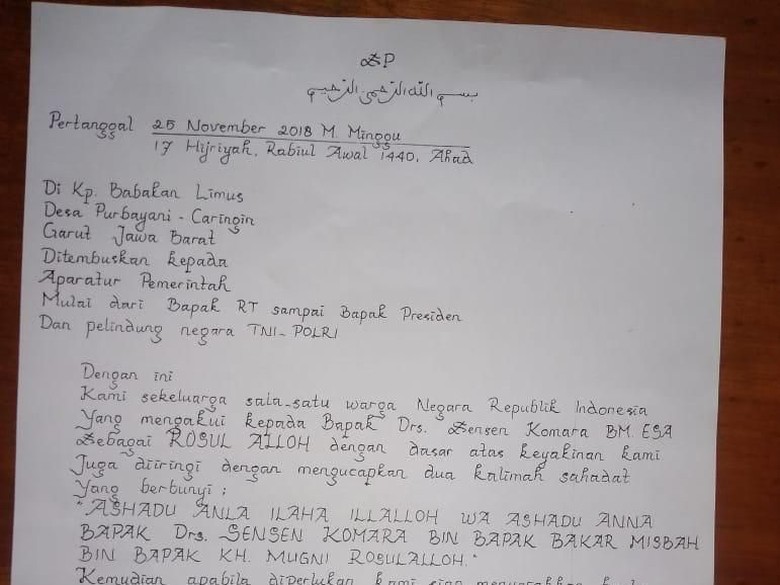 ZP
بسم الله الرحمن الرحيم
Pertanggal 25 November 2018 M. Minggu
17 Hijriyah, Rabiul Awal 1440, Ahad
Di Kp. Babakan Limus
Desa Purbayani - Caringin
Garut Jawa Barat
Ditembuskan kepada
Aparatur Pemerintah
Mulai dari Bapak RT sampai Bapak Presiden
Dan pelindung negara TNI-POLRI
Dengan ini
Kami sekeluarga sala-satu warga Negara Republik Indonesia
Yang mengakui kepada Bapak Drs. Sensen Komara BM. ESA
Sebagai ROSUL ALLOH dengan dasar atas keyakinan kami
Juga diiringi dengan mengucapkan dua kalimah sahadat
Yang berbunyi ;
"ASHADU ANLA ILAHA ILLALLOH WA ASHADU ANNA
BAPAK Drs. SENSEN KOMARA BIN BAPAK BAKAR MISBAH
BIN BAPAK KH. MUGNI ROSULALLOH."
Kemudian apabila diperlukan kami siap